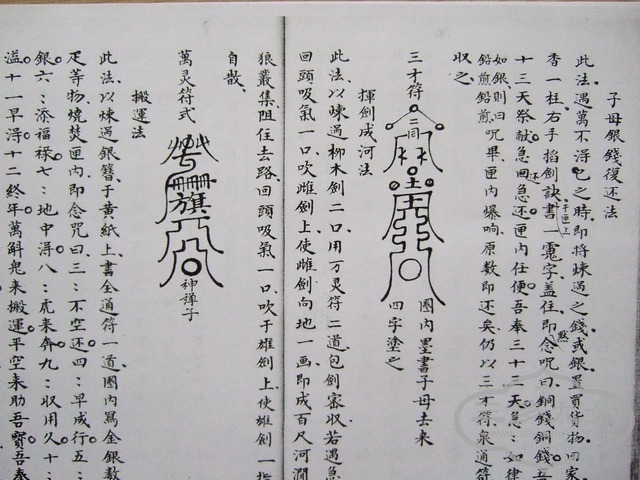 子母銀錢復还法
此法遇萬不得已之時、即将煉過之錢、或銀置買貨物、回家
香一柱、右手掐劍訣、書一寃字盖住、即念咒曰、銅錢銅錢、吾
于匣上
黙
十三天祭献、急回急还、匣内任便、吾奉三十三天急：如律
还
如銀、則曰
鉛煎鉛煎、咒畢、匣内爆响、原数即还矣、仍以三才符、泉通符
収之、
三才符
二同
土
圈内墨書子母去来
四字塗之
揮劍成河法
此法以煉過柳木劍二口、用万灵符二道包劍密収、若遇急
回頭吸氣一口、吹雌劍上、使雌劍向地一画、即成百尺河澗
狼叢集、阻住去路、回頭吸氣一口、吹于雄劍上、使雄劍一指
自散、
萬灵符式
旗
神禅子
搬運法
此法、以煉過銀簪子黄紙上、書全通符一道、圈内寫金銀数
疋等物、燒焚匣内、即念咒曰、三：不空还四：早成行五：
銀六：添福禄七：地中得八：虎来奔九：収用久十：
溢十一早得十二終年萬斛鬼来搬運、平空来助吾、寳吾奉